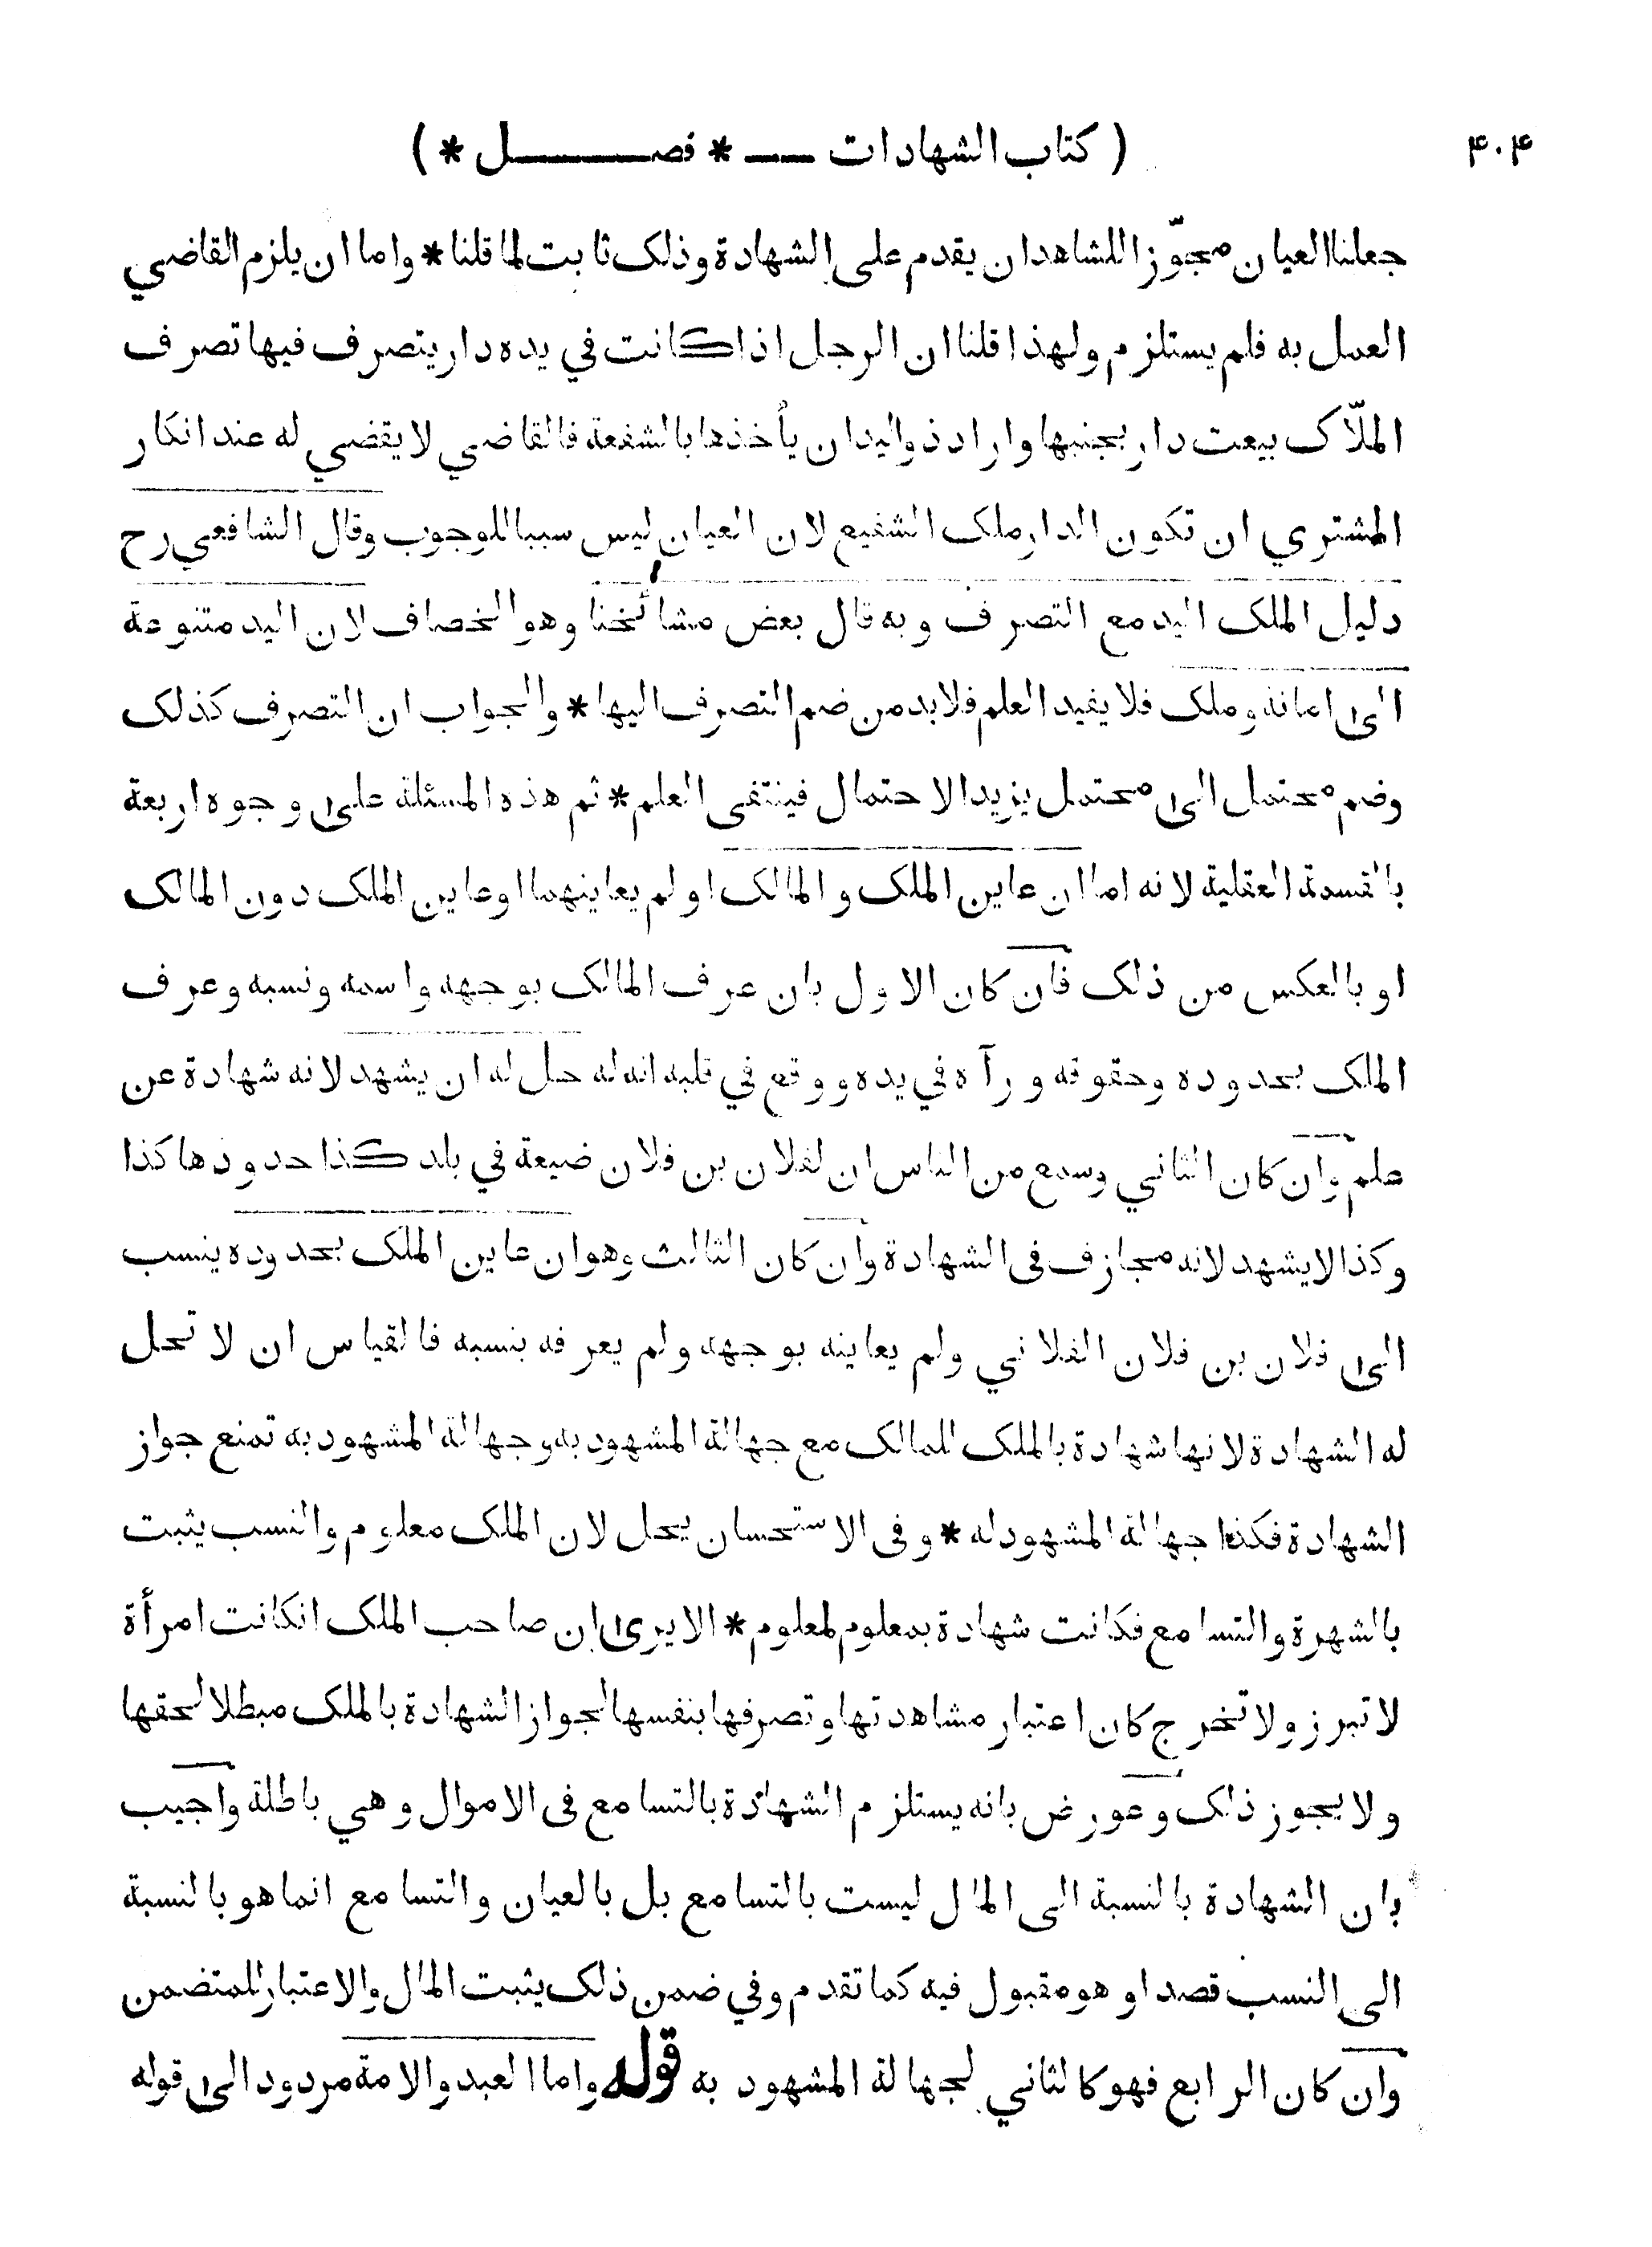 ۴۰۴
( كتاب الشهادات — * فصــل * )
جعلنا العيان مجوّزا للشاهد ان يقدم على الشهادة وذلک ثابت لما قلنا * واما ان يلزم القاضي
العمل به فلم يستلزم ولهذا قلنا ان الرجل اذا كانت في يده دار يتصرف فيها تصرف
الملّاک بيعت دار بجنبها واراد ذو اليد ان يأخذها بالشفعة فالقاضي لا يقضي له عند انكار
المشتري ان تكون الدار ملک الشفيع لان العيان ليس سببا للوجوب وقال الشافعي رح
دليل الملک اليد مع التصرف وبه قال بعض مشائخنا وهو الخصاف لان اليد متنوعة
الى امانة وملک فلا يفيد العلم فلا بد من ضم التصرف اليها * والجواب ان التصرف كذلک
وضم محتمل الى محتمل يزيد الاحتمال فينتفى العلم * ثم هذه المسئلة على وجوه اربعة
بالقسمة العقلية لانه اما ان عاين الملک والمالک او لم يعاينهما او عاين الملک دون المالک
او بالعكس من ذلک فان كان الاول بان عرف المالک بوجهه واسمه ونسبه وعرف
الملک بحدوده وحقوقه ورآه في يده ووقع في قلبه انه له حل له ان يشهد لانه شهادة عن
علم وان كان الثاني وسمع من الناس ان لفلان بن فلان ضيعة في بلد كذا حدودها كذا
وكذا لا يشهد لانه مجازف فى الشهادة وان كان الثالث وهو ان عاين الملک بحدوده ينسب
الى فلان بن فلان الفلاني ولم يعاينه بوجهه ولم يعرفه بنسبه فالقياس ان لا تحل
له الشهادة لانها شهادة بالملک للمالک مع جهالة المشهود به وجهالة المشهود به تمنع جواز
الشهادة فكذا جهالة المشهود له * وفى الاستحسان يحل لان الملک معلوم والنسب يثبت
بالشهرة والتسامع فكانت شهادة بمعلوم لمعلوم * الا يرى ان صاحب الملک انكانت امرأة
لا تبرز ولا تخرج كان اعتبار مشاهدتها وتصرفها بنفسها لجواز الشهادة بالملک مبطلا لحقها
ولا يجوز ذلک وعورض بانه يستلزم الشهادة بالتسامع فى الاموال وهي باطلة واجيب
بان الشهادة بالنسبة الى المال ليست بالتسامع بل بالعيان والتسامع انما هو بالنسبة
الى النسب قصدا وهو مقبول فيه كما تقدم وفي ضمن ذلک يثبت المال والاعتبار للمتضمن
وان كان الرابع فهو كالثاني لجهالة المشهود به قوله واما العبد والامة مردود الى قوله